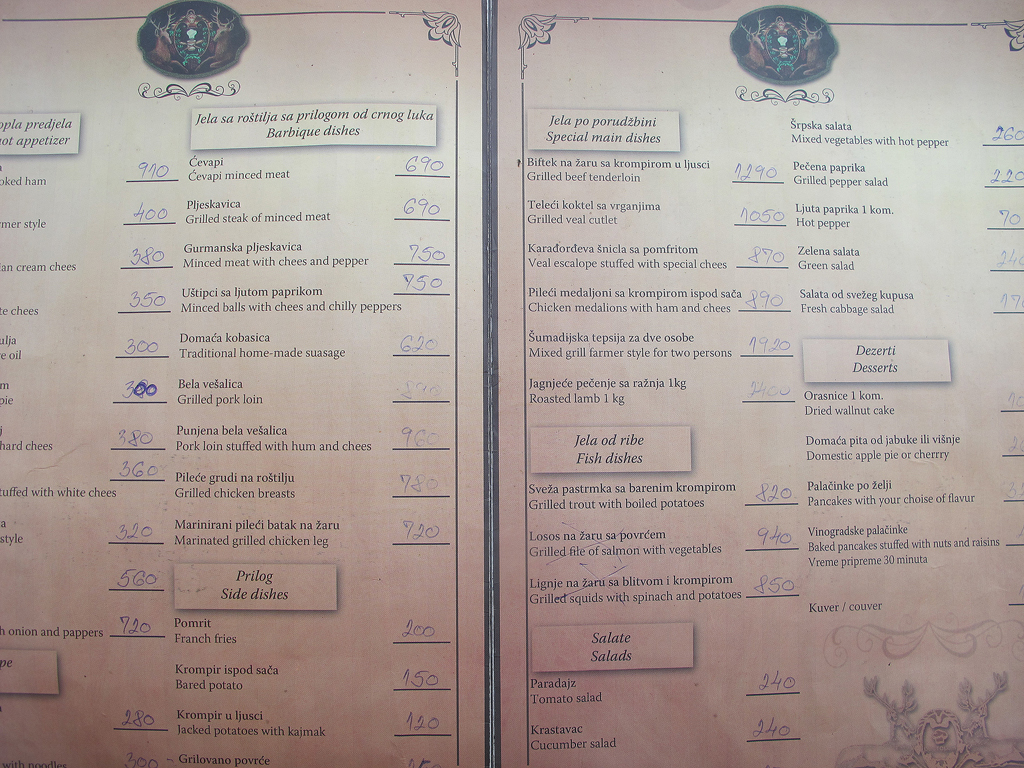 opla predjela
ot appetizer
910
oked ham
400
mer style
380
ian cream chees
350
te chees
ulja 300
e oil
m 300
pie
j 380
hard chees
360
tuffed with white chees
a 320
style
560
720
h onion and pappers
pe
280
300
with noodles
Jela sa roštilja sa prilogom od crnog luka
Barbique dishes
Ćevapi 690
Ćevapi minced meat
Pljeskavica 690
Grilled steak of minced meat
Gurmanska pljeskavica 750
Minced meat with chees and pepper
Uštipci sa ljutom paprikom 750
Minced balls with chees and chilly peppers
Domaća kobasica 620
Traditional home-made suasage
Bela vešalica
Grilled pork loin
Punjena bela vešalica 960
Pork loin stuffed with hum and chees
Pileće grudi na roštilju 780
Grilled chicken breasts
Marinirani pileći batak na žaru 720
Marinated grilled chicken leg
Prilog
Side dishes
Pomrit 200
Franch fries
Krompir ispod sača 150
Bared potato
Krompir u ljusci 120
Jacked potatoes with kajmak
Grilovano povrće
Jela po porudžbini
Special main dishes
Biftek na žaru sa krompirom u ljusci 1290
Grilled beef tenderloin
Teleći koktel sa vrganjima 1050
Grilled veal cutlet
Karađorđeva šnicla sa pomfritom 870
Veal escalope stuffed with special chees
Pileći medaljoni sa krompirom ispod sača 890
Chicken medalions with ham and chees
Šumadijska tepsija za dve osobe 1920
Mixed grill farmer style for two persons
Jagnjeće pečenje sa ražnja 1kg 2400
Roasted lamb 1 kg
Jela od ribe
Fish dishes
Sveža pastrmka sa barenim krompirom 820
Grilled trout with boiled potatoes
Losos na žaru sa povrćem 940
Grilled file of salmon with vegetables
Lignje na žaru sa blitvom i krompirom 850
Grilled squids with spinach and potatoes
Salate
Salads
Paradajz 240
Tomato salad
Krastavac 240
Cucumber salad
Šrpska salata 260
Mixed vegetables with hot pepper
Pečena paprika 220
Grilled pepper salad
Ljuta paprika 1 kom. 70
Hot pepper
Zelena salata 240
Green salad
Salata od svežeg kupusa 170
Fresh cabbage salad
Dezerti
Desserts
Orasnice 1 kom.
Dried wallnut cake
Domaća pita od jabuke ili višnje
Domestic apple pie or cherrry
Palačinke po želji
Pancakes with your choise of flavur
Vinogradske palačinke
Baked pancakes stuffed with nuts and raisins
Vreme pripreme 30 minuta
Kuver / couver